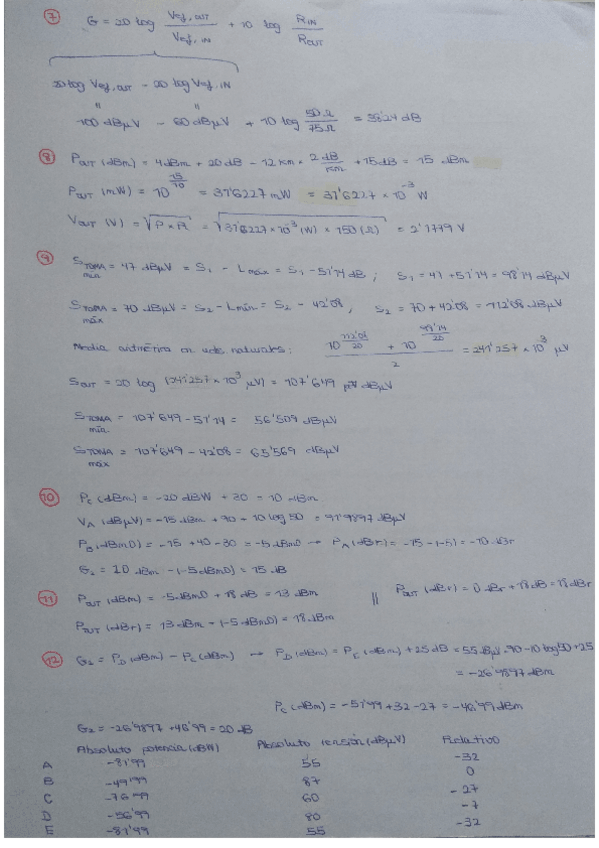 7 G = 20 log Vef,OUT / Vef,IN + 10 log RIN / ROUT
20 log Vef,OUT - 20 log Vef,IN
" "
100 dBµV - 60 dBµV + 10 log 50Ω / 75Ω = 38'24 dB
8 POUT (dBm) = 4dBm + 20 dB - 12 km × 2 dB/km + 15dB = 15 dBm
POUT (mW) = 10^(15/10) = 31'6227 mW = 31'6227 × 10^-3 W
VOUT (V) = √P×R = √31'6227×10^-3 (W) × 150 (Ω) = 2'1779 V
9 STOMA mín = 47 dBµV = S1 - Lmáx = S1 - 51'14 dB ; S1 = 47 + 51'14 = 98'14 dBµV
STOMA máx = 70 dBµV = S2 - Lmín = S2 - 42'08, S2 = 70 + 42'08 = 112'08 dBµV
Media aritmética en uds. naturales: 10^(112'08/20) + 10^(98'14/20) / 2 = 241'257 × 10^3 µV
SOUT = 20 log (241'257 × 10^3 µV) = 107'649 dBµV
STOMA mín = 107'649 - 51'14 = 56'509 dBµV
STOMA máx = 107'649 - 42'08 = 65'569 dBµV
10 PC (dBm) = -20 dBW + 30 = 10 dBm
VA (dBµV) = -15 dBm + 90 + 10 log 50 = 91'9897 dBµV
PB (dBm0) = -15 + 40 - 30 = -5 dBm0 → PA (dBr) = -15 - (-5) = -10 dBr
G2 = 10 dBm - (-5 dBm0) = 15 dB
11 POUT (dBm) = -5dBm0 + 18 dB = 13 dBm // POUT (dBr) = 0 dBr + 18 dB = 18 dBr
POUT (dBr) = 13 dBm - (-5 dBm0) = 18 dBm
12 G2 = PD (dBm) - PC (dBm) → PD (dBm) = PC (dBm) + 25 dB = 55 dBµV - 90 - 10 log 50 + 25
= -26'9897 dBm
PC (dBm) = -51'99 + 32 - 27 = -46'99 dBm
G2 = -26'9897 + 46'99 = 20 dB
Absoluto potencia (dBW) Absoluto tensión (dBµV) Relativo
A -81'99 55 -32
B -49'99 87 0
C -76'99 60 -27
D -56'99 80 -7
E -81'99 55 -32